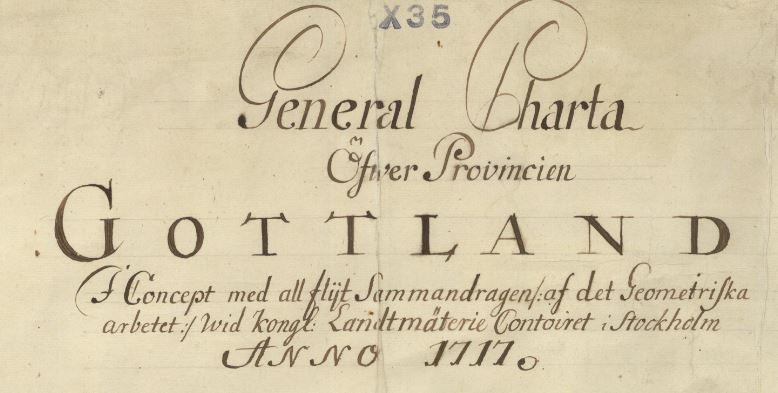 X35
General Charta
Öfwer Provincien
GOTTLAND
I Concept med all flijt Sammandragen/:af det Geometriſka
arbetet:/ wid kongl: Landtmäterie Contoiret i Stockholm
ANNO 1717.